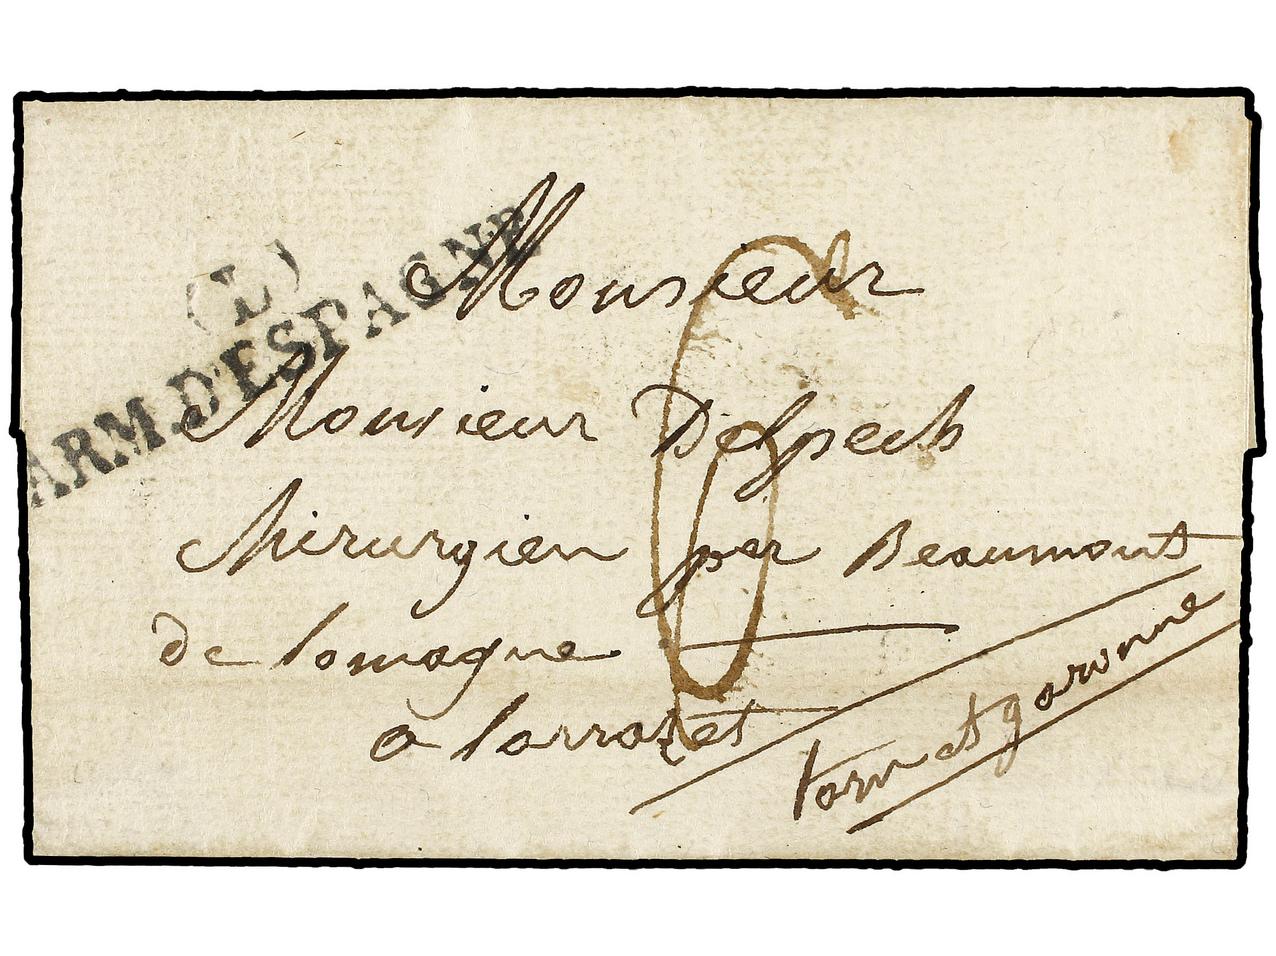 (L)
ARM.D'ESPAGNE
Monsieur
Monsieur Delpech
Chirurgien par Beaumont
de lomagne
a larrazet
tarn et garonne
6